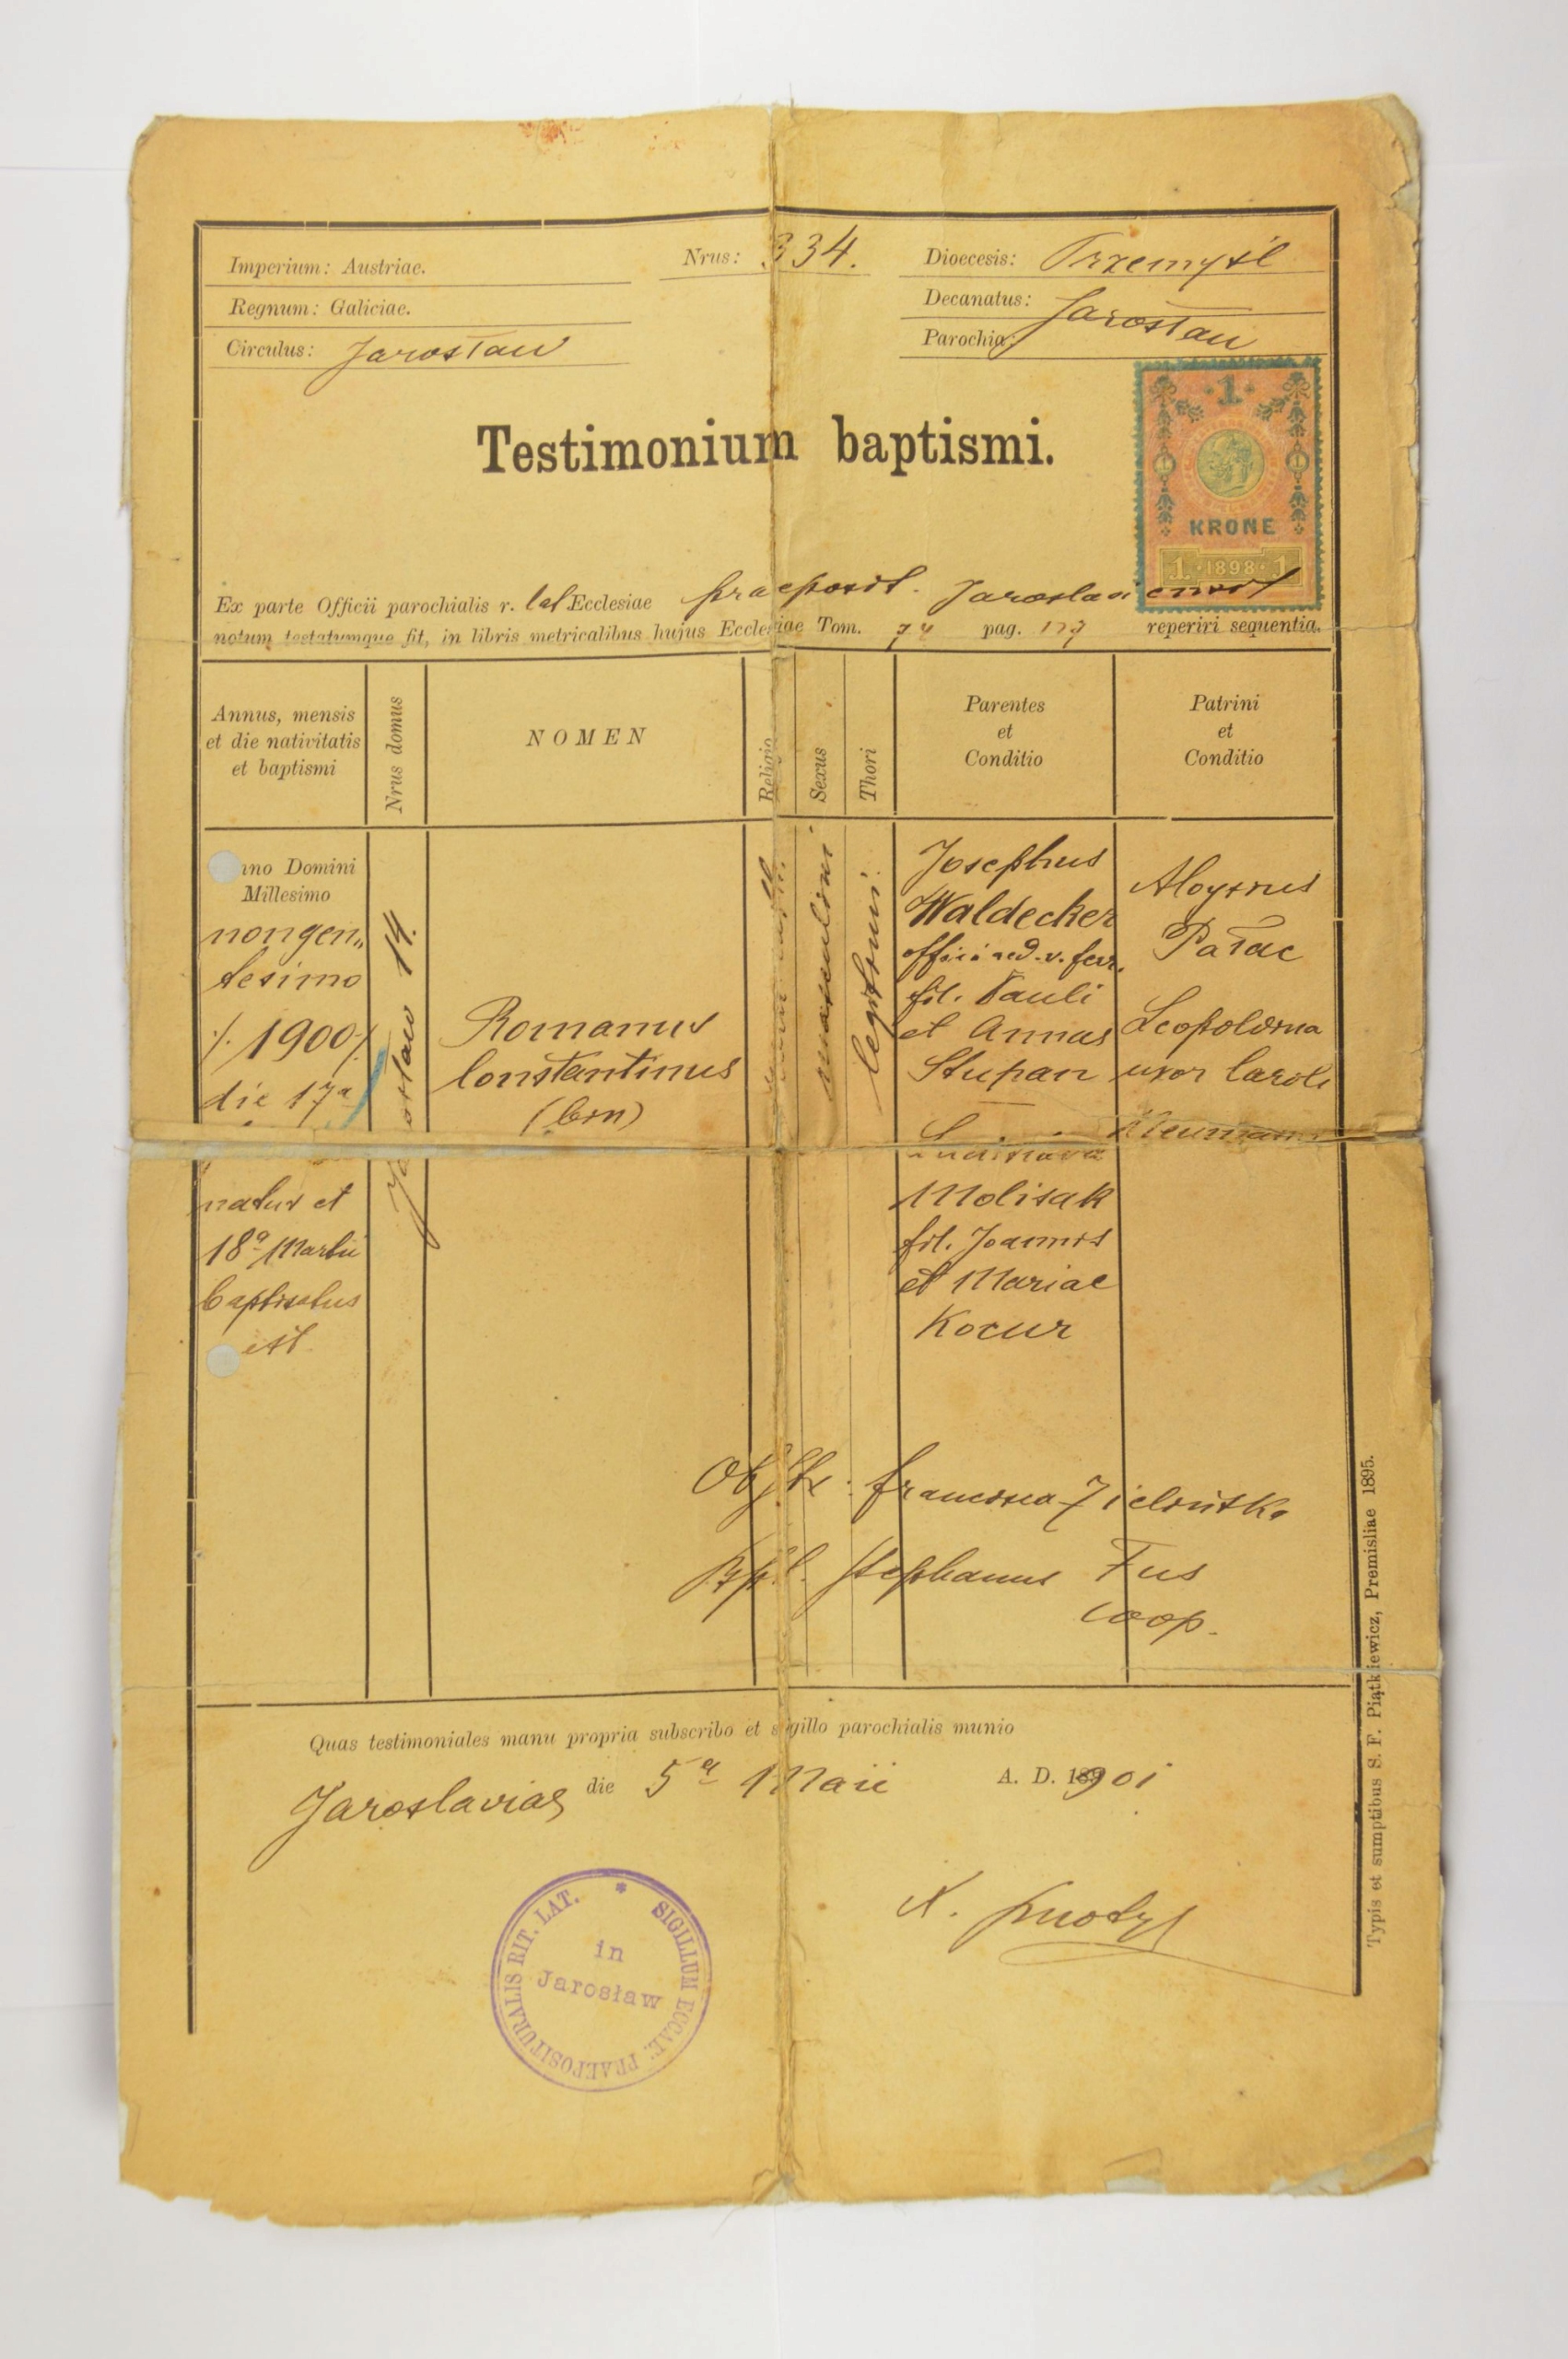 Imperium: Austriae.
Nrus: 334.
Dioecesis: Przemyśl
Regnum: Galiciae.
Decanatus:
Circulus: Jarosław
Parochia: Jarosław
Testimonium baptismi.
1
KRONE
1 · 1898 · 1
Ex parte Officii parochialis r. lat Ecclesiae praeposit. Jaroslaviensis
notum testatumque fit, in libris metricalibus hujus Ecclesiae Tom. pag. reperiri sequentia.
Annus, mensis
et die nativitatis
et baptismi
Nrus domus
NOMEN
Religio
Sexus
Thori
Parentes
et
Conditio
Patrini
et
Conditio
nno Domini
Millesimo
nongen„
tesimo
/. 1900 /.
die 17a
natus et
18a Martii
baptisatus
est.
Jarosław 14.
Romanus
Constantinus
(bin)
masculini
legitimi.
Josephus
Waldecker
fil. Pauli
et Annae
Stupan
Molisak
fil. Joannis
et Mariae
Kocur
Aloysius
Pałac
Leopoldina
uxor Caroli
Neumann
Obstx: Francisca Zielińska
Bpt. Stephanus Fus
coop.
Quas testimoniales manu propria subscribo et sigillo parochialis munio
Jaroslaviae die 5a Maii A. D. 1901
SIGILLUM ECCAE. PRAEPOSITURALIS RIT. LAT. *
in
Jarosław
Typis et sumptibus S. F. Piątkiewicz, Premisliae 1895.